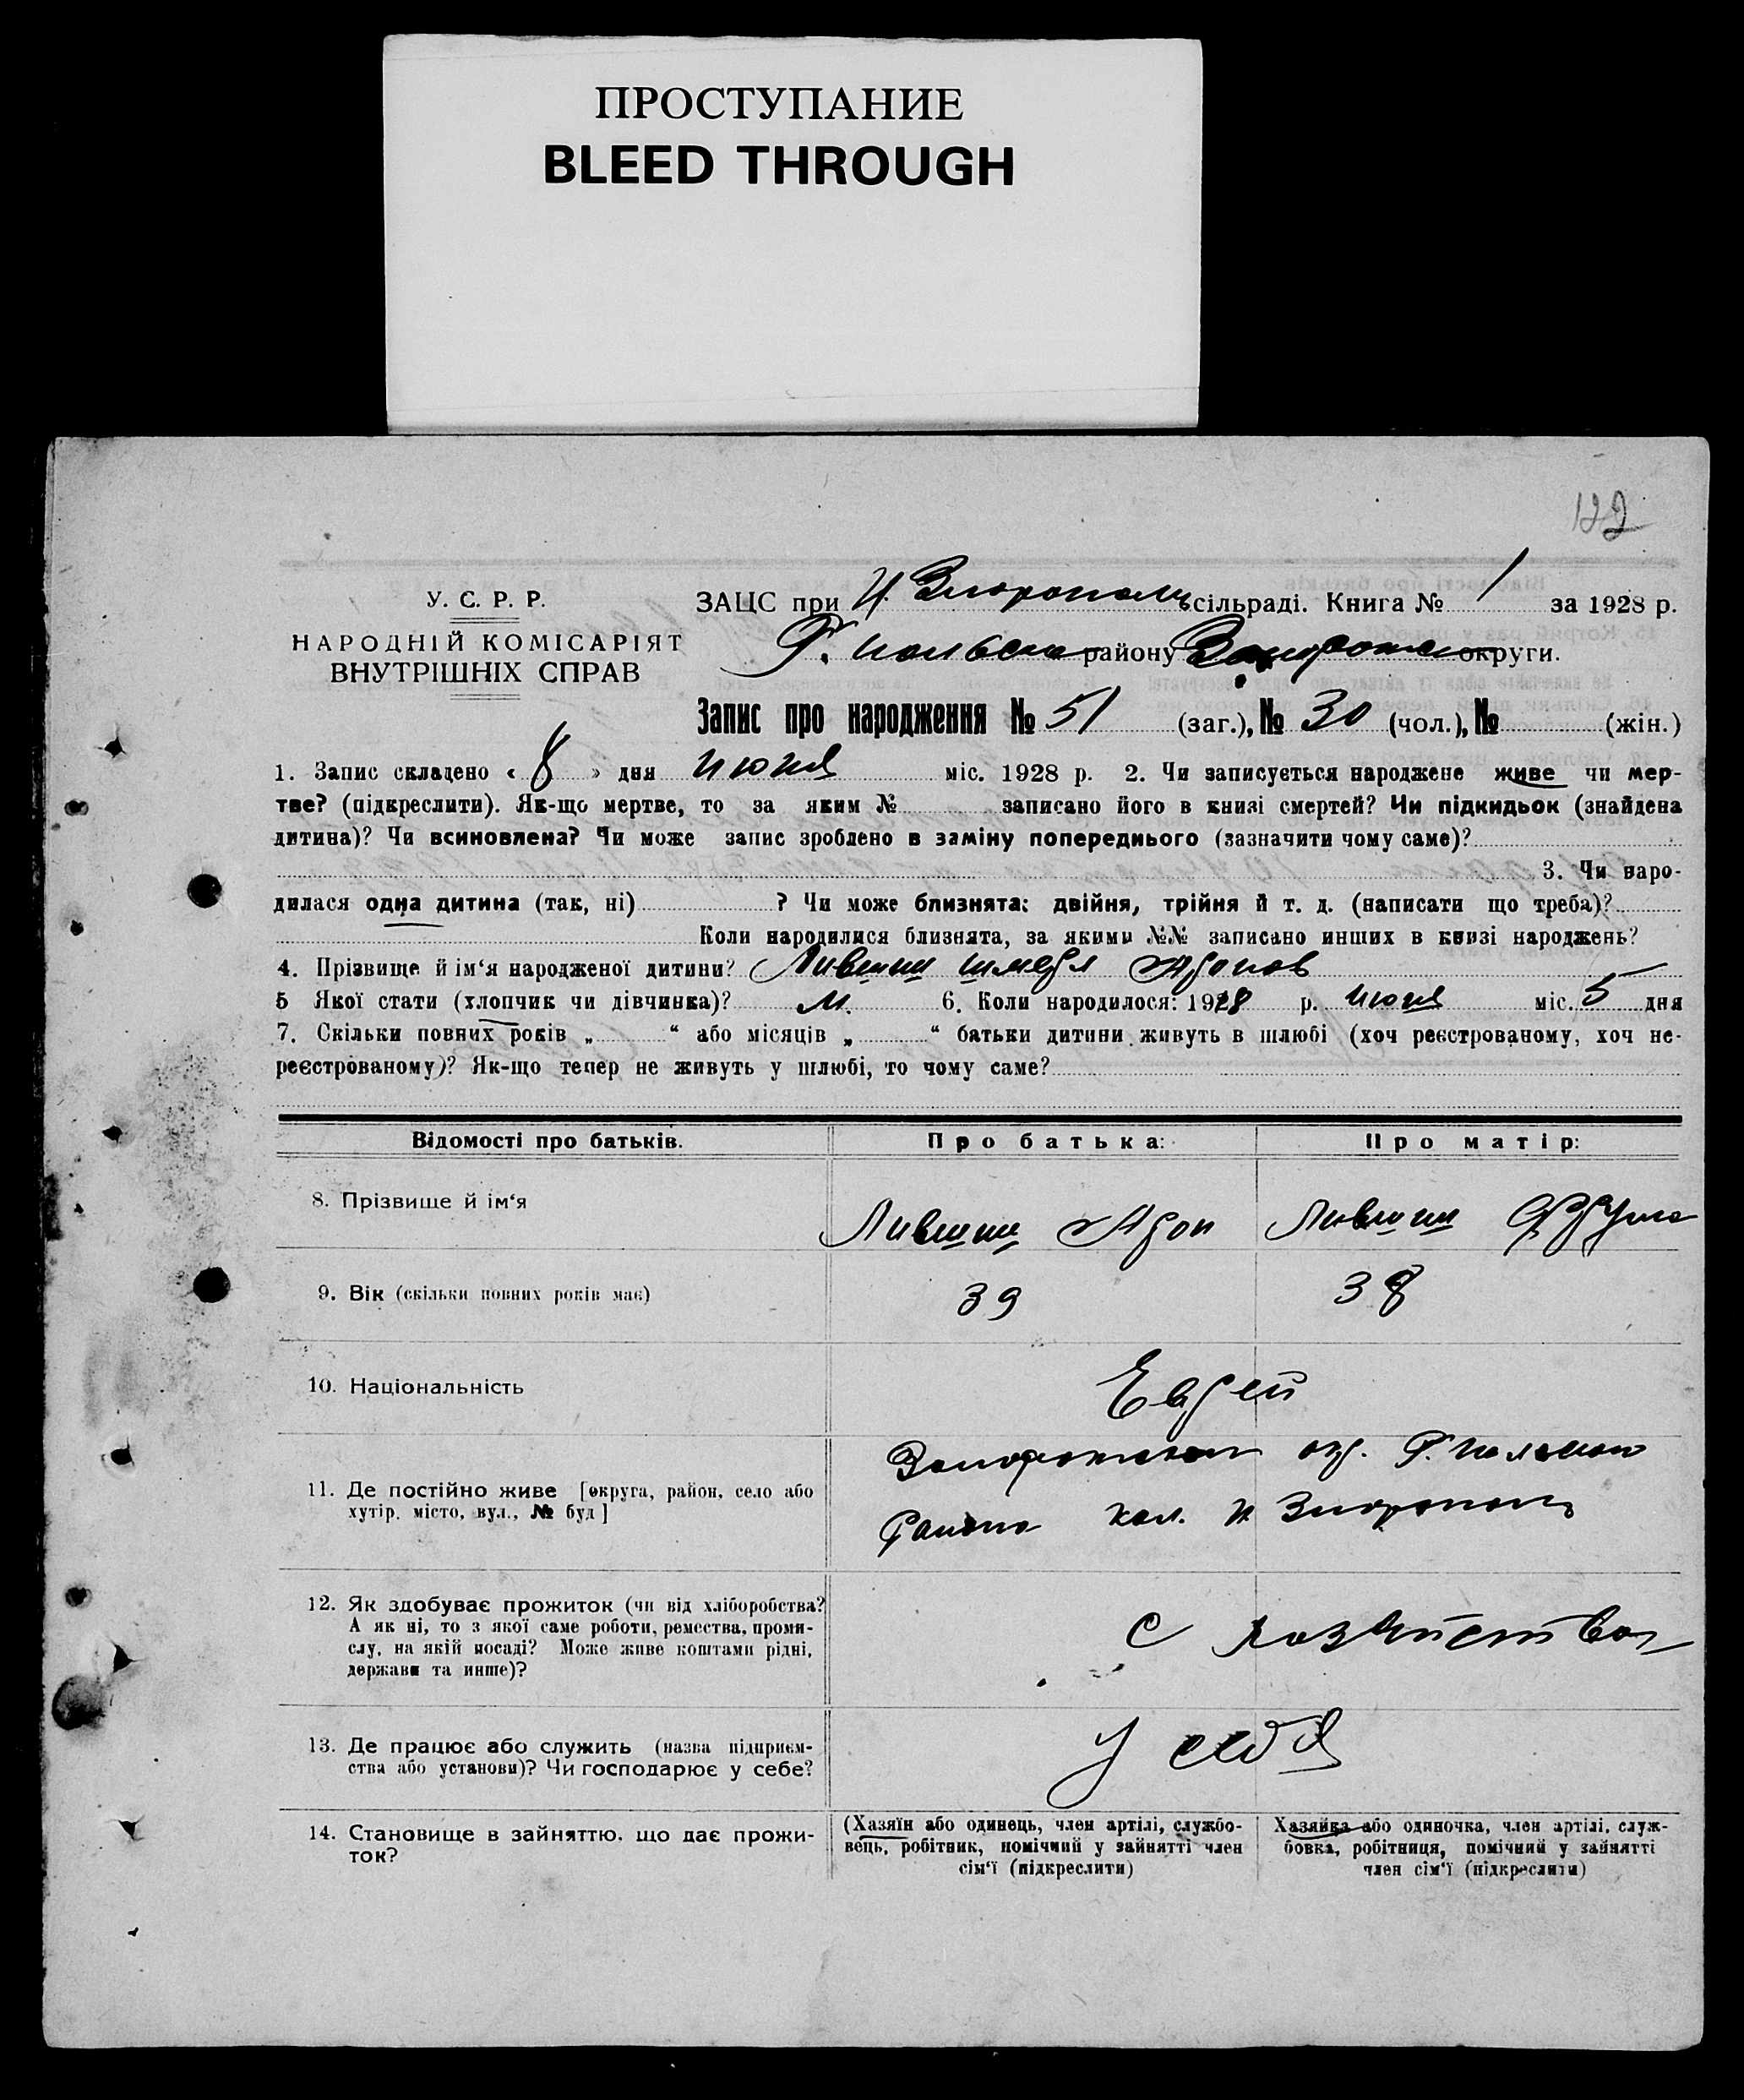 ПРОСТУПАНИЕ
BLEED THROUGH
122
У. С. Р. Р.
НАРОДНІЙ КОМІСАРІЯТ
ВНУТРІШНІХ СПРАВ
ЗАЦС при Н Златополь сільраді. Книга № 1 за 1928 р.
району округи.
Запис про народження № 51 (заг.), № 30 (чол.), № (жін.)
1. Запис складено « 8 » дня июня міс. 1928 р. 2. Чи записується народжене живе чи мер-
тве? (підкреслити). Як-що мертве, то за яким № записано його в книзі смертей? Чи підкидьок (знайдена
дитина)? Чи всиновлена? Чи може запис зроблено в заміну попереднього (зазначити чому саме)?
3. Чи наро-
дилася одна дитина (так, ні) ? Чи може близнята: двійня, трійня й т. д. (написати що треба)?
Коли народилися близнята, за якими №№ записано инших в книзі народжень?
4. Прізвище й ім‘я народженої дитини? Лившиц Аронов
5 Якої стати (хлопчик чи дівчинка)? М. 6. Коли народилося: 1928 р. июня міс. 5 дня
7. Скільки повних років „ “ або місяців „ “ батьки дитини живуть в шлюбі (хоч реєстрованому, хоч не-
реєстрованому)? Як-що тепер не живуть у шлюбі, то чому саме?
Відомості про батьків.
Про батька:
Про матір:
8. Прізвище й ім‘я
Лившиц Арон
Лившиц Фрума
9. Вік (скільки повних років має)
39
38
10. Національність
Еврей
11. Де постійно живе [округа, район, село або
хутір, місто, вул., № буд]
окр.
района кол. Н Златополь
12. Як здобуває прожиток (чи від хліборобства?
А як ні, то з якої саме роботи, ремества, проми-
слу, на якій посаді? Може живе коштами рідні,
держави та инше)?
С хозяйства
13. Де працює або служить (назва підприєм-
ства або установи)? Чи господарює у себе?
у себя
14. Становище в зайняттю, що дає прожи-
ток?
(Хазяїн або одинець, член артілі, службо-
вець, робітник, помічний у зайнятті член
сім‘ї (підкреслити)
Хазяйка або одиночка, член артілі, служ-
бовка, робітниця, помічний у зайнятті
член сім‘ї (підкреслити)